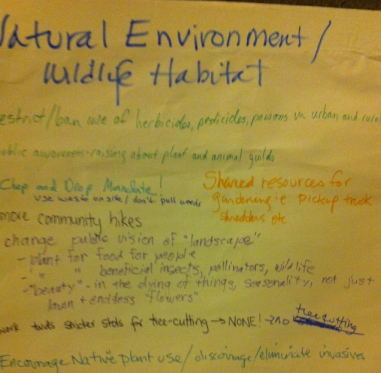 Natural Environment/
Wildlife Habitat
restrict/ban use of herbicides, pesticides, poisons in urban and rural
public awareness-raising about plant and animal guilds
Chop and Drop Mandate!
use waste on site / don't pull weeds
Shared resources for
gardening ie pickup truck
shredders etc
more community hikes
change public vision of "landscape"
- plant for food for people
- " " beneficial insects, pollinators, wildlife
- "beauty" - in the dying of things, seasonality, not just
lawn + endless "flowers"
work towards stricter stds for tree-cutting → NONE! → no tree cutting
Encourage Native plant use / discourage/eliminate invasives